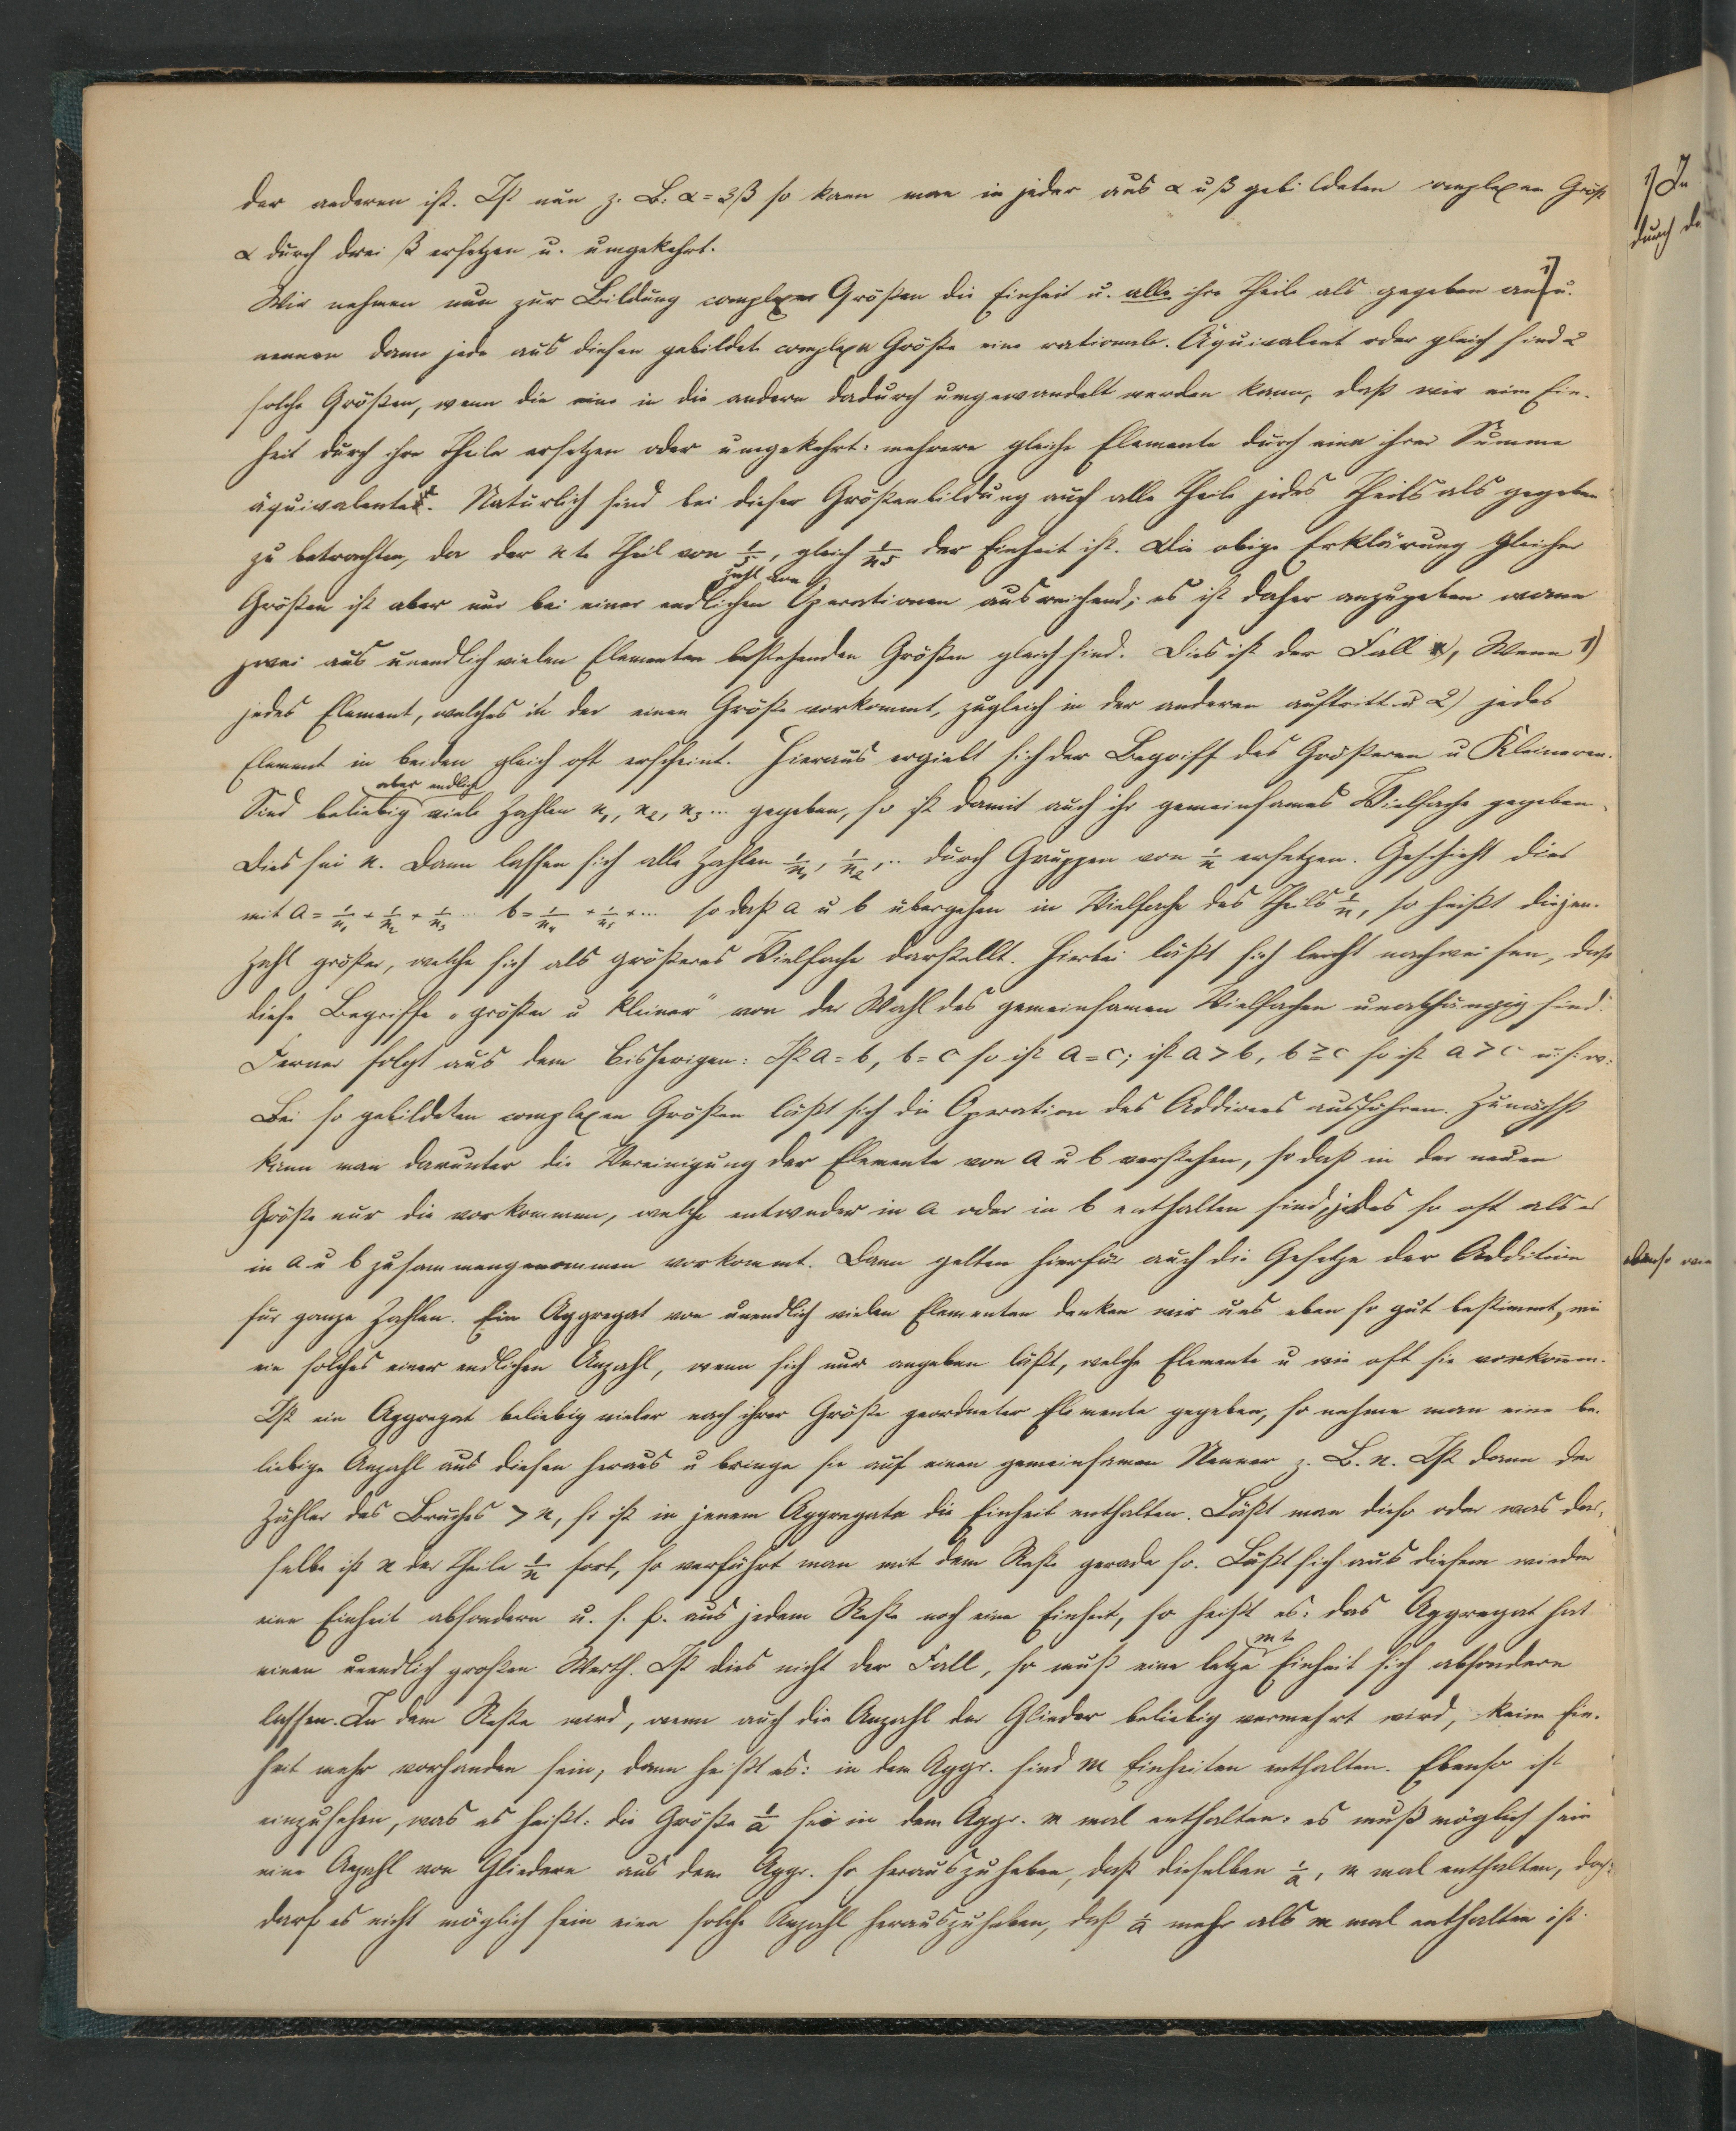 der anderen ist. Ist nun z. B: α = 3β so kann man in jeder aus α u β gebildeten complexen Größe
α durch drei β ersetzen u. umgekehrt.
Wir nehmen nun zur Bildung complexer Größen die Einheit u. alle ihre Theile als gegeben an 1) u.
nennen dann jede aus diesen gebildete complexe Größe eine rationale. Äquivalent oder gleich sind 2
solche Größen, wenn die eine in die andere dadurch umgewandelt werden kann, daß wir eine Ein-
heit durch ihre Theile ersetzen oder umgekehrt: mehrere gleiche Elemente durch eine ihrer Summe
äquivalente. Natürlich sind bei dieser Größenbildung auch alle Theile jedes Theils als gegeben
zu betrachten, da der n te Theil von 1/5, gleich 1/n5 der Einheit ist. Die obige Erklärung gleicher
Zahl von
Größen ist aber nur bei einer endlichen Operationen ausreichend; es ist daher anzugeben wann
zwei aus unendlich vielen Elementen bestehenden Größen gleich sind. Dies ist der Fall, Wenn 1)
jedes Element, welches in der einen Größe vorkommt, zugleich in der anderen auftritt u 2) jedes
Element in beiden gleich oft erscheint. Hieraus ergiebt sich der Begriff des Größeren u Kleineren.
aber endlich
Sind beliebig viele Zahlen n₁, n₂, n₃ ... gegeben, so ist damit auch ihr gemeinsames Vielfache gegeben.
Dies sei n. Dann lassen sich alle Zahlen 1/n₁, 1/n₂, .. durch Gruppen von 1/n ersetzen. Geschieht dies
mit a = 1/n₁ + 1/n₂ + 1/n₃ ... b = 1/n₄ + 1/n₅ + ... so daß a u b übergehen in Vielfache des Theils 1/n, so heißt diejen.
Zahl größer, welche sich als größeres Vielfache darstellt. Hierbei läßt sich leicht nachweisen, daß
diese Begriffe „größer u kleiner" von der Wahl des gemeinsamen Vielfachen unabhängig sind.
Ferner folgt aus dem bisherigen: Ist a = b, b = c so ist a = c; ist a > b, b ≥ c so ist a > c u. s. w.
Bei so gebildeten complexen Größen läßt sich die Operation des Addirens ausführen. Zunächst
kann man darunter die Vereinigung der Elemente von a u b verstehen, so daß in der neuen
Größe nur die vorkommen, welche entweder in a oder in b enthalten sind, jedes so oft als es
in a u b zusammengenommen vorkommt. Dann gelten hierfür auch die Gesetze der Addition
für ganze Zahlen. Ein Aggregat von unendlich vielen Elementen denken wir uns eben so gut bestimmt, wie
ein solches einer endlichen Anzahl, wenn sich nur angeben läßt, welche Elemente u wie oft sie vorkom̅en.
Ist ein Aggregat beliebig vieler nach ihrer Größe geordneter Elemente gegeben, so nehme man eine be-
liebige Anzahl aus diesen heraus u bringe sie auf einen gemeinsamen Nenner z. B. n. Ist dann der
Zähler des Bruches > n, so ist in jenem Aggregate die Einheit enthalten. Läßt man diese oder was das-
selbe ist n der Theile 1/n fort, so verfährt man mit dem Reste gerade so. Läßt sich aus diesem wieder
eine Einheit absondern u. s. f. aus jedem Reste noch eine Einheit, so heißt es: das Aggregat hat
mte
einen unendlich großen Werth. Ist dies nicht der Fall, so muß eine letzte Einheit sich absondern
lassen. In dem Reste wird, wenn auch die Anzahl der Glieder beliebig vermehrt wird, keine Ein-
heit mehr vorhanden sein, dann heißt es: in dem Aggr. sind m Einheiten enthalten. Ebenso ist
einzusehen, was es heißt: die Größe 1/a sei in dem Aggr. m mal enthalten: es muß möglich sein
eine Anzahl von Gliedern aus dem Aggr. so herauszuheben, daß dieselben 1/a, m mal enthalten, doch
darf es nicht möglich sein eine solche Anzahl herauszuheben, daß 1/a mehr als m mal enthalten ist.
1) In
durch de
ebenso wie